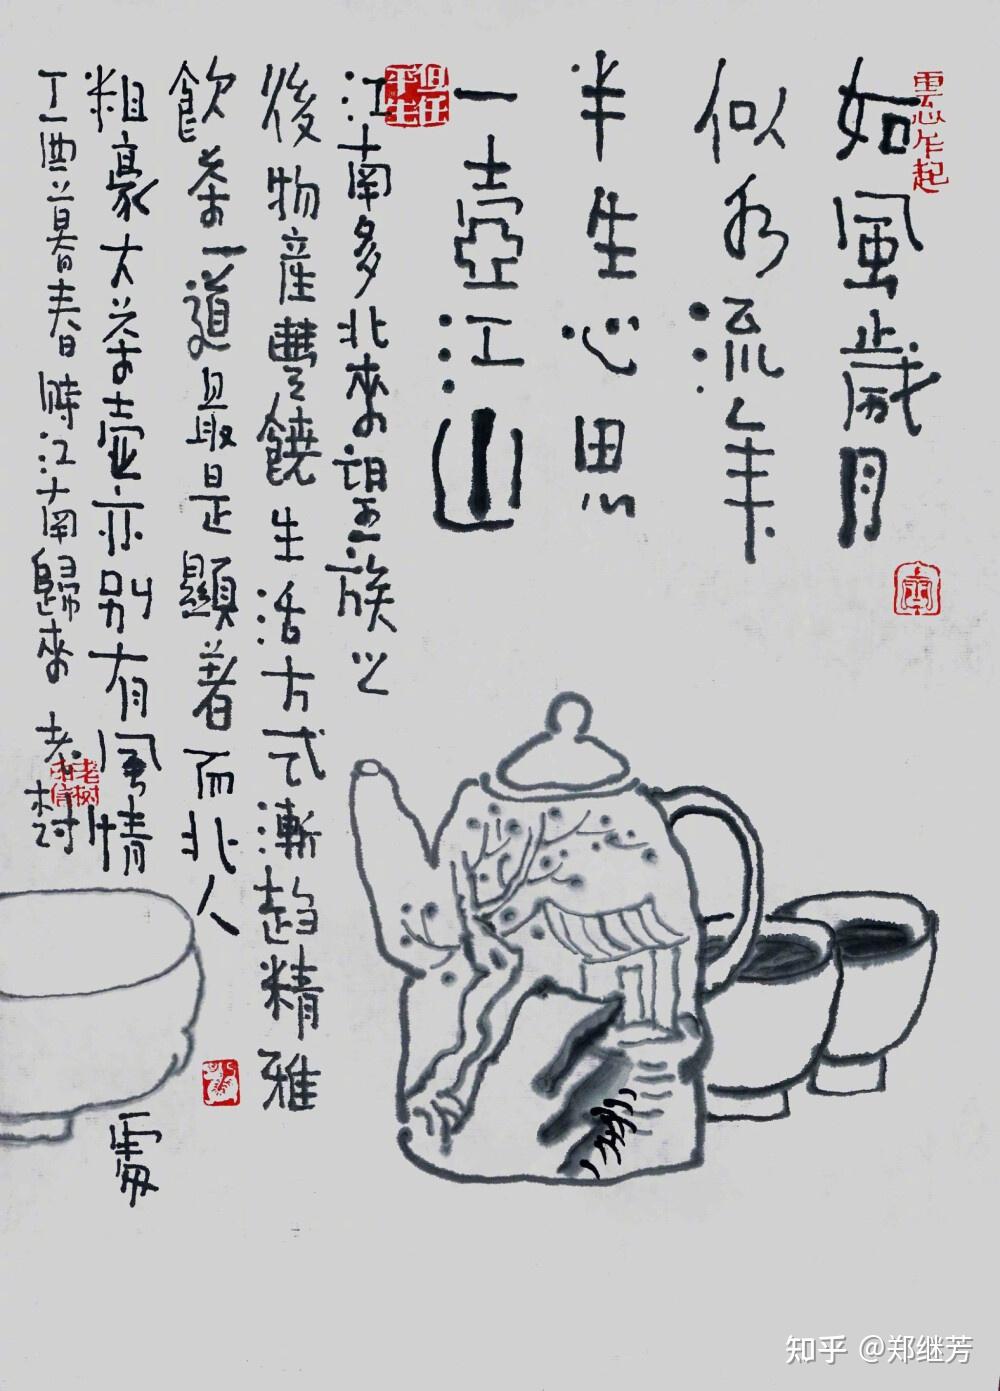 如風歲月
似水流年
半生心思
一壺江山
但任平生
江南多北來望族之
後物產豐饒生活方式漸趨精雅
飲茶一道最是顯著而北人
粗豪大茶壺亦別有風情
丁酉暮春時江南歸來 老樹
老树
知乎 @郑继芳